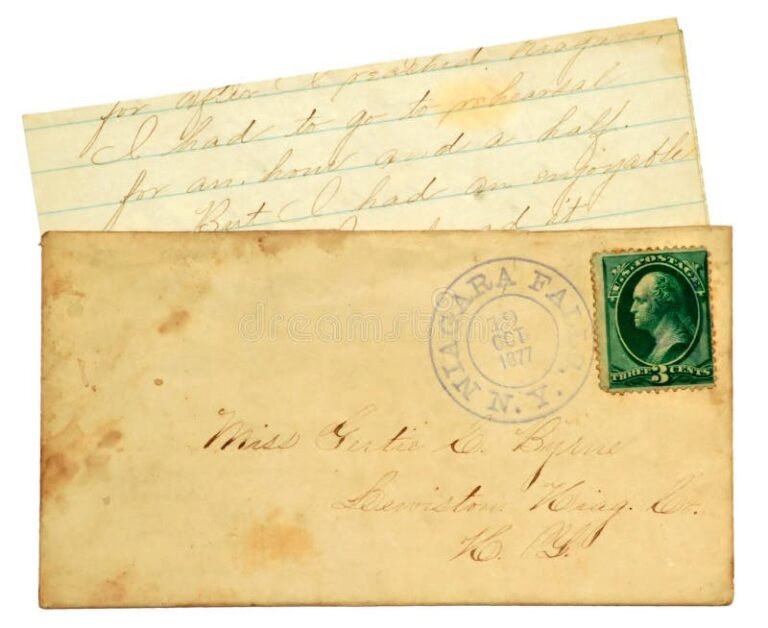 for after I reached Niagara,
I had to go to rehearsal
for an hour and a half.
But I had an enjoyable
it
NIAGARA FALLS
19
OCT
1877
N.Y.
U.S. POSTAGE
THREE 3 CENTS
dreamstime
Miss Gertie E. Byrne
Lewiston. Niag. Co.
N. Y.